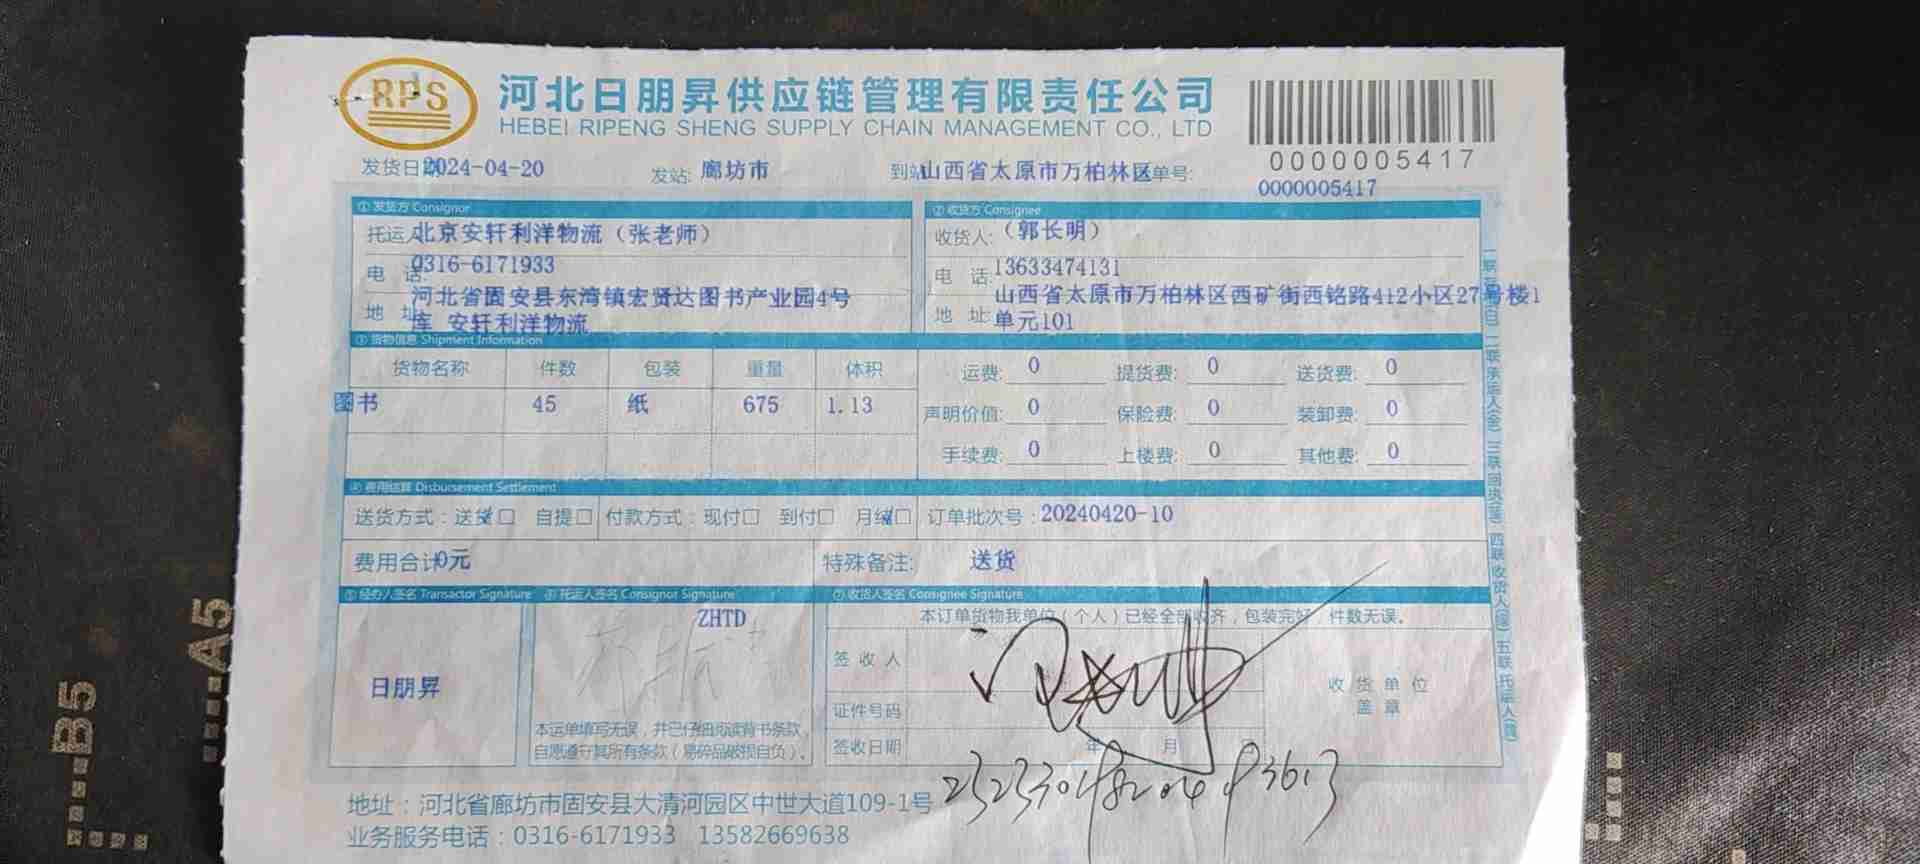 RPS
河北日朋昇供应链管理有限责任公司
HEBEI RIPENG SHENG SUPPLY CHAIN MANAGEMENT CO., LTD
0000005417
发货日期 2024-04-20 发站: 廊坊市 到站 山西省太原市万柏林区 单号: 0000005417
① 发货方 Consignor ② 收货方 Consignee
托运人 北京安轩利洋物流（张老师） 收货人: （郭长明）
电 话: 0316-6171933 电 话: 13633474131
地 址 河北省固安县东湾镇宏贤达图书产业园4号 地 址: 山西省太原市万柏林区西矿街西铭路412小区27号楼1
库 安轩利洋物流 单元101
③ 货物信息 Shipment Information
货物名称 件数 包装 重量 体积 运费: 0 提货费: 0 送货费: 0
图书 45 纸 675 1.13 声明价值: 0 保险费: 0 装卸费: 0
手续费: 0 上楼费: 0 其他费: 0
④ 费用结算 Disbursement Settlement
送货方式：送货 自提 付款方式：现付 到付 月结 订单批次号：20240420-10
费用合计 0元 特殊备注: 送货
⑤ 经办人签名 Transactor Signature ⑥ 托运人签名 Consignor Signature ⑦ 收货人签名 Consignee Signature
ZHTD 本订单货物我单位（个人）已经全部收齐，包装完好，件数无误。
日朋昇 签 收 人 收 货 单 位
盖 章
证件号码
本运单填写无误，并已仔细阅读背书条款，
自愿遵守其所有条款（易碎品破损自负）。 签收日期 年 月
地址：河北省廊坊市固安县大清河园区中世大道109-1号
业务服务电话：0316-6171933 13582669638
B5
A5